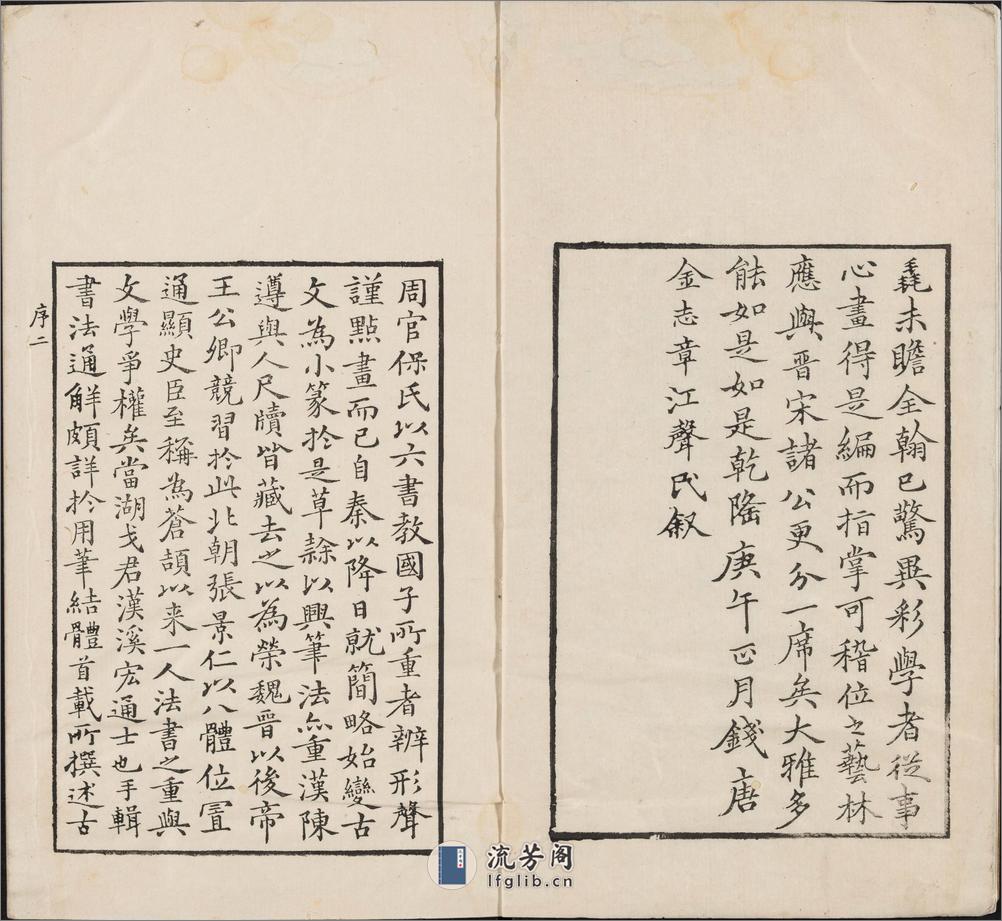 毳未瞻全翰已驚異彩學者從事
心畫得是編而指掌可稽位之藝林
應與晉宋諸公更分一席矣大雅多
能如是如是乾隆庚午正月錢唐
金志章江聲氏叙
周官保氏以六書教國子所重者辨形聲
謹點畫而已自秦以降日就簡略始變古
文為小篆於是草隸以興筆法亦重漢陳
遵與人尺牘皆藏去之以為榮魏晉以後帝
王公卿競習於此北朝張景仁以八體位置
通顯史臣至稱為蒼頡以来一人法書之重與
文學爭權矣當湖戈君漢溪宏通士也手輯
書法通解頗詳於用筆結體首載所撰述古
序二
流芳阁
lfglib.cn